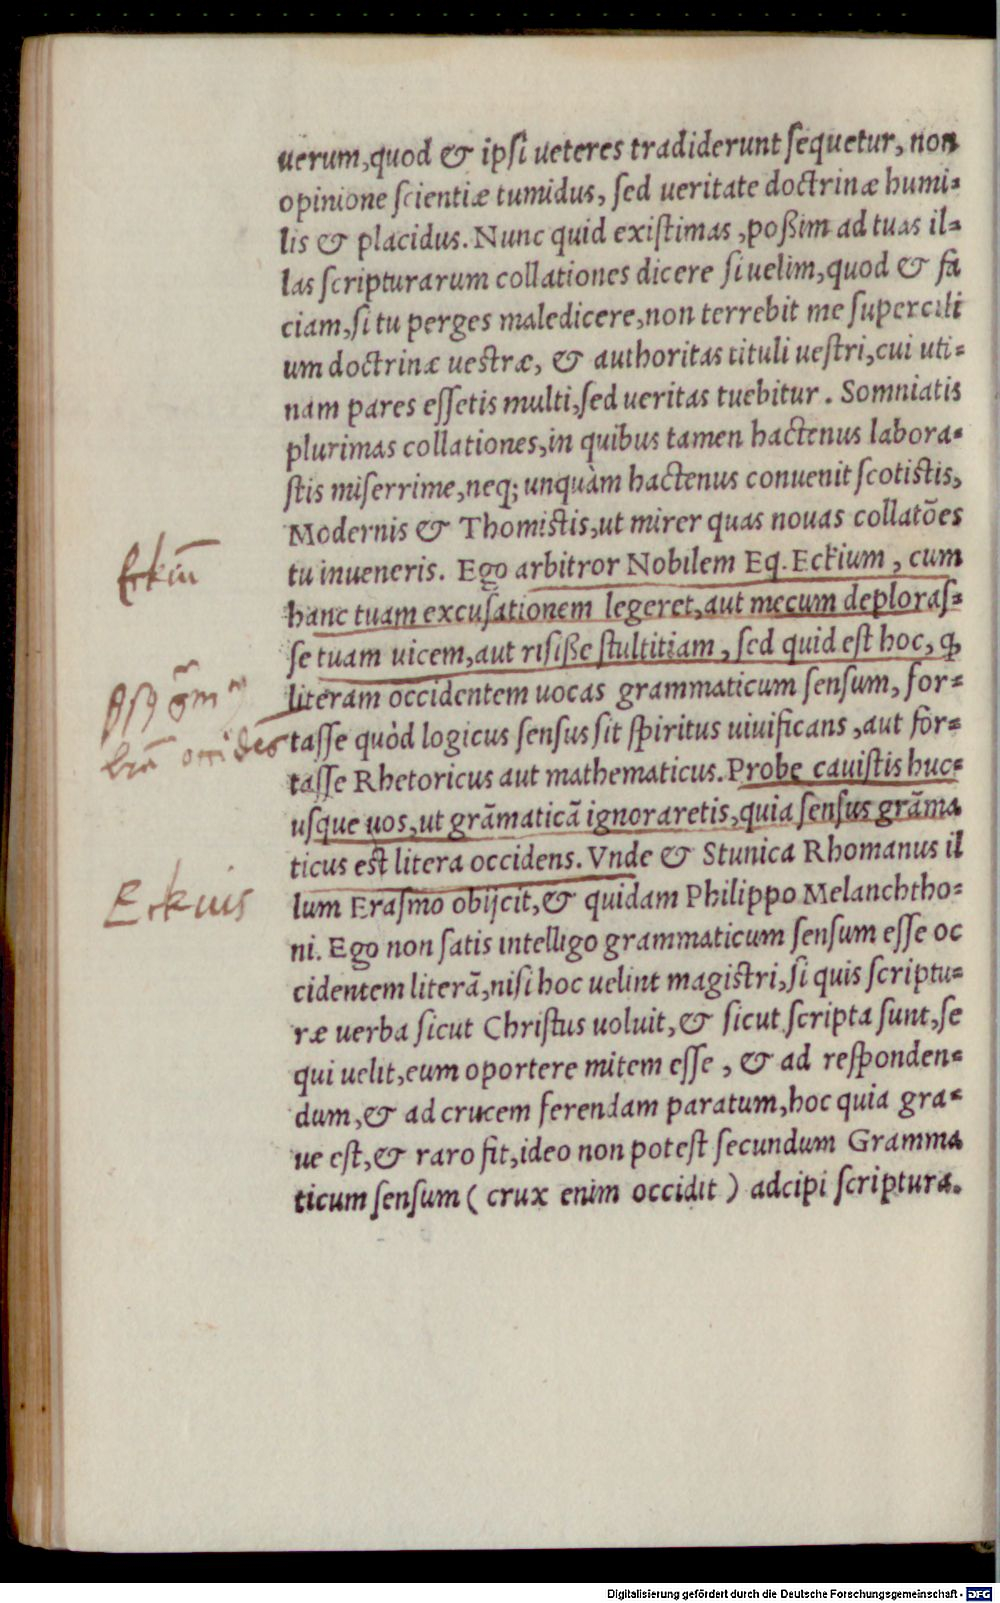 uerum,quod & ipſi ueteres tradiderunt ſequetur, non
opinione ſcientiæ tumidus, ſed ueritate doctrinæ humi-
lis & placidus. Nunc quid exiſtimas ,poßim ad tuas il-
las ſcripturarum collationes dicere ſi uelim,quod & fa
ciam,ſi tu perges maledicere,non terrebit me ſupercili
um doctrinæ ueſtræ, & authoritas tituli ueſtri,cui uti-
nam pares eſſetis multi,ſed ueritas tuebitur . Somniatis
plurimas collationes,in quibus tamen hactenus labora-
ſtis miſerrime,neq; unquàm hactenus conuenit ſcotiſtis,
Modernis & Thomiſtis,ut mirer quas nouas collatões
tu inueneris. Ego arbitror Nobilem Eq. Eckium , cum
Eckiū
hanc tuam excuſationem legeret,aut mecum deploraſ-
ſe tuam uicem,aut riſiße ſtultitiam , ſed quid eſt hoc, ꝙ
literam occidentem uocas grammaticum ſenſum, for-
taſſe quòd logicus ſenſus ſit ſpiritus uiuificans ,aut for-
taſſe Rhetoricus aut mathematicus. Probe cauiſtis huc-
uſque uos,ut grāmaticā ignoraretis,quia ſenſus grāma
ticus eſt litera occidens. Vnde & Stunica Rhomanus il
lum Eraſmo obijcit,& quidam Philippo Melanchtho-
Eckius
ni. Ego non ſatis intelligo grammaticum ſenſum eſſe oc
cidentem literā,niſi hoc uelint magiſtri,ſi quis ſcriptu-
ræ uerba ſicut Chriſtus uoluit,& ſicut ſcripta ſunt,ſe
qui uelit,eum oportere mitem eſſe , & ad reſponden-
dum,& ad crucem ferendam paratum,hoc quia gra-
ue eſt,& raro fit,ideo non poteſt ſecundum Gramma
ticum ſenſum ( crux enim occidit ) adcipi ſcriptura.
Digitalisierung gefördert durch die Deutsche Forschungsgemeinschaft - DFG